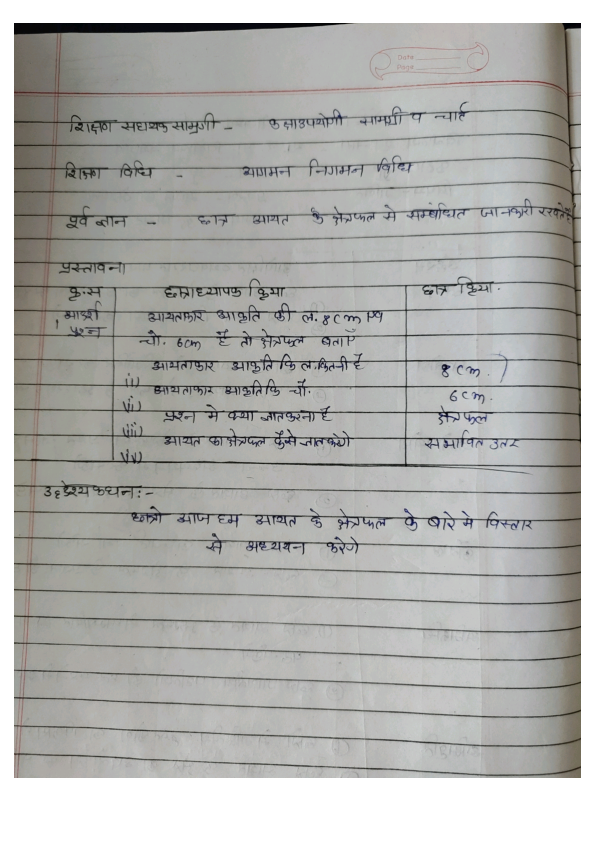 Date
Page
शिक्षण सहायक सामग्री - कक्षाउपयोगी सामग्री व चार्ट
शिक्षा विधि - आगमन निगमन विधि
पूर्व ज्ञान - छात्र आयत के क्षेत्रफल से सम्बंधित जानकारी रखते है
प्रस्तावना
कृ.स छात्राध्यापक क्रिया छात्र क्रिया.
आदर्श आयताकार आकृति की ल. 8cm एव
प्रश्न चौ. 6cm है तो क्षेत्रफल बताएँ
i) आयताकार आकृति कि ल. कितनी है 8 cm.
ii) आयताकार आकृति कि चौ. 6 cm.
iii) प्रश्न मे क्या ज्ञात करना है क्षेत्रफल
iv) आयत का क्षेत्रफल कैसे ज्ञात करेंगे सभावित उतर
उद्देश्य कथन :-
छात्रो आज हम आयत के क्षेत्रफल के बारे मे विस्तार
से अध्ययन करेगे